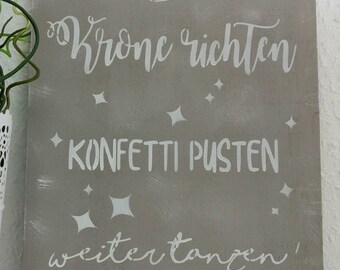 Krone richten
KONFETTI PUSTEN
weiter tanzen!